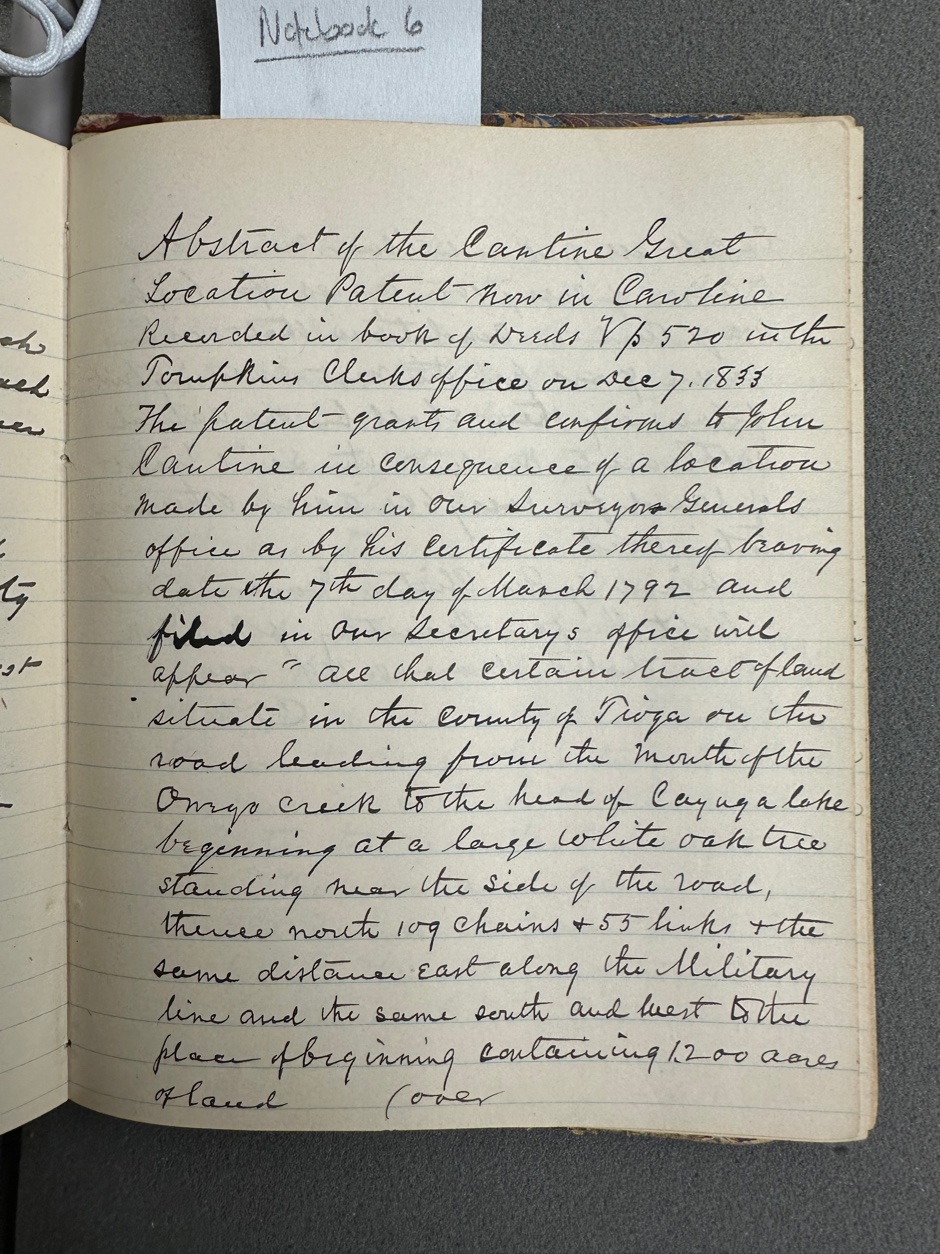 Notebook 6
Abstract of the Cantine Great
Location Patent now in Caroline
Recorded in book of Deeds V p 520 in the
Tompkins Clerks office on Dec 7. 1833
The patent grants and confirms to John
Cantine in consequence of a location
made by him in our Surveyors Generals
office as by his certificate thereof bearing
date the 7th day of March 1792 and
filed in our Secretarys office will
appear " all that certain tract of land
situate in the county of Tioga on the
road leading from the mouth of the
Owego creek to the head of Cayuga lake
beginning at a large white oak tree
standing near the side of the road,
thence north 109 chains + 55 links + the
same distance east along the Military
line and the same south and west to the
place of beginning containing 1200 acres
of land (over